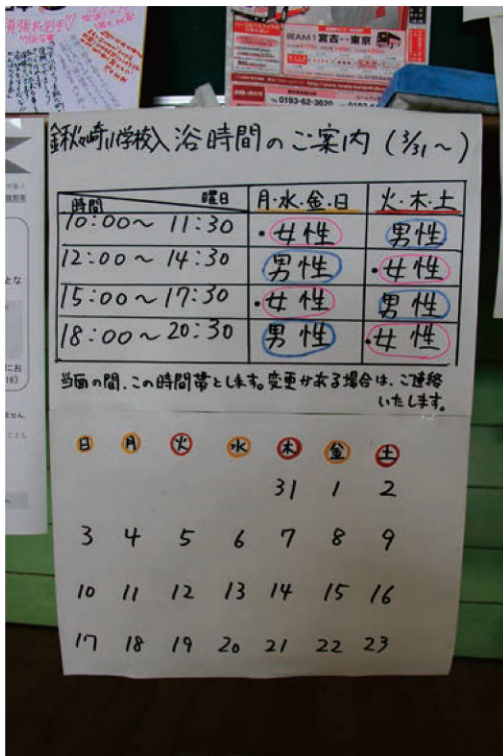 BEAM1 宮古--東京
0193-62-3620
鍬ヶ崎小学校入浴時間のご案内(3/31~)
時間 曜日 月・水・金・日 火・木・土
10:00~11:30 ・女性 男性
12:00~14:30 男性 ・女性
15:00~17:30 ・女性 男性
18:00~20:30 男性 ・女性
当面の間、この時間帯とします。変更がある場合は、ご連絡
いたします。
日 月 火 水 木 金 土
31 1 2
3 4 5 6 7 8 9
10 11 12 13 14 15 16
17 18 19 20 21 22 23